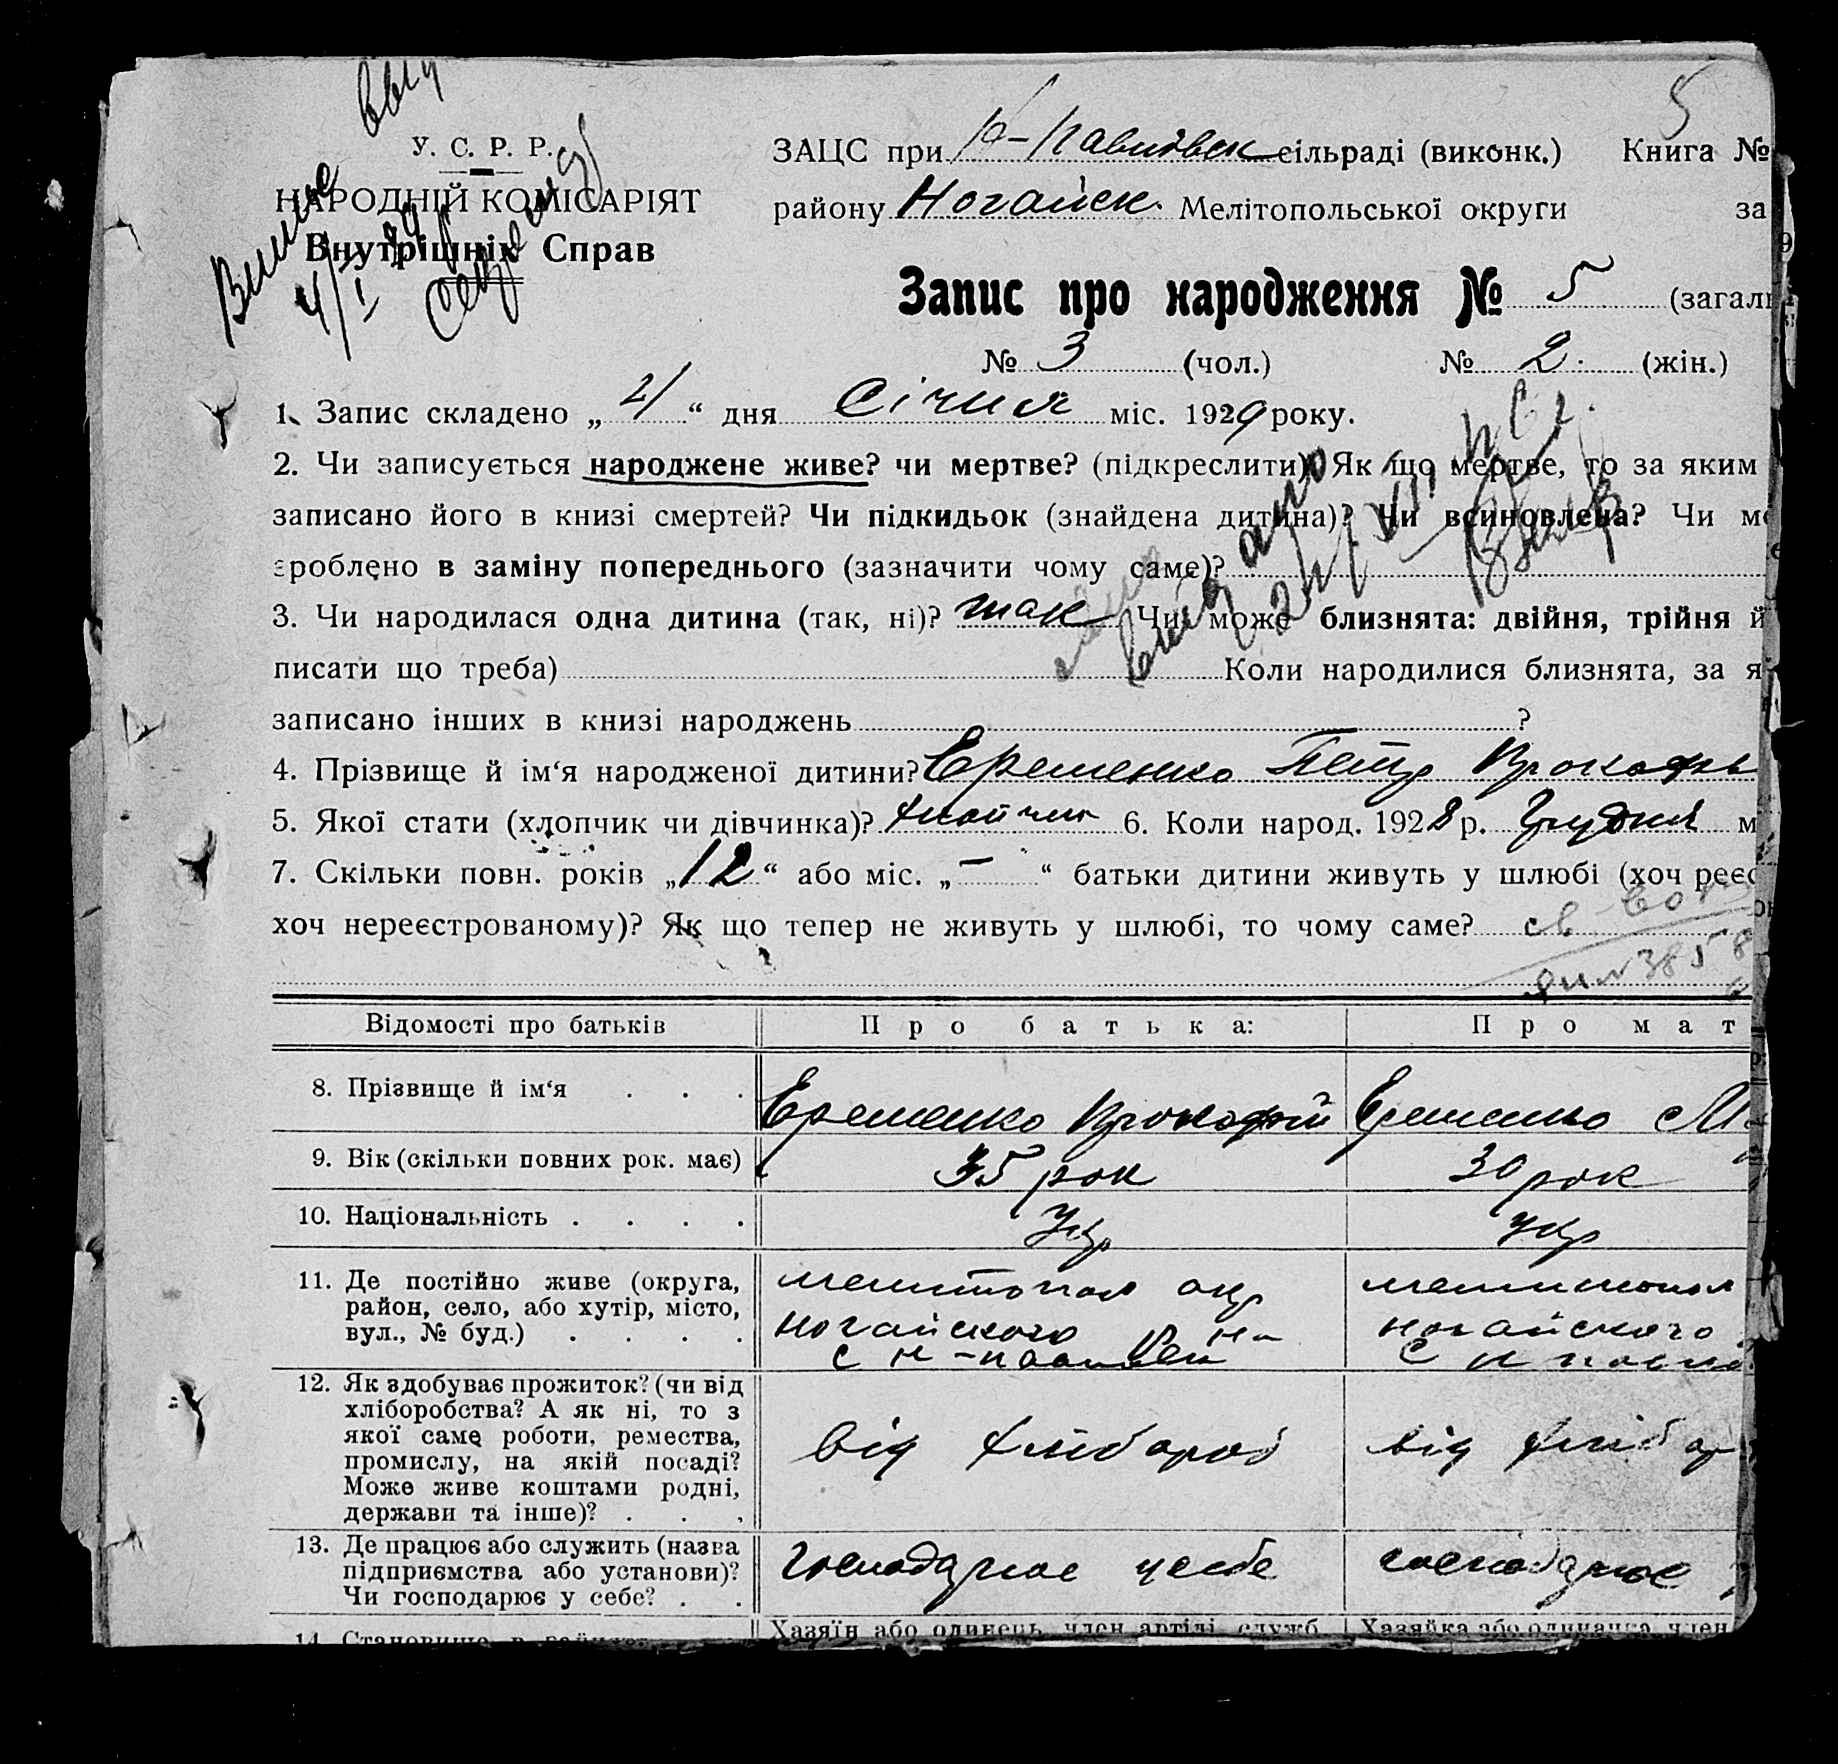 5
У. С. Р. Р.
НАРОДНІЙ КОМІСАРІЯТ
Внутрішніх Справ
ЗАЦС при Н-Павлівск сільраді (виконк.) Книга №
району Ногайск. Мелітопольської округи за
Запис про народження № 5 (загал
№ 3 (чол.) № 2. (жін.)
1. Запис складено „ 4 “ дня Січня міс. 1929 року.
2. Чи записується народжене живе? чи мертве? (підкреслити) Як що мертве, то за яким
записано його в книзі смертей? Чи підкидьок (знайдена дитина)? Чи всиновлена? Чи
зроблено в заміну попереднього (зазначити чому саме)?
3. Чи народилася одна дитина (так, ні)? так Чи може близнята: двійня, трійня й
писати що треба) Коли народилися близнята, за
записано інших в книзі народжень ?
4. Прізвище й ім‘я народженої дитини? Еременко Петр Прокофь
5. Якої стати (хлопчик чи дівчинка)? хлопчик 6. Коли народ. 1928 р. Грудня м
7. Скільки повн. років „ 12 “ або міс. „ – “ батьки дитини живуть у шлюбі (хоч реєс
хоч нереєстрованому)? Як що тепер не живуть у шлюбі, то чому саме?
Відомості про батьків Про батька: Про мат
8. Прізвище й ім‘я . . . Еременко Прокофий Еременко М
9. Вік (скільки повних рок. має) 35 рок 30 рок
10. Національність . . . . Укр укр
11. Де постійно живе (округа, мелитопол окр мелитопол
район, село, або хутір, місто, ногайского р на ногайского
вул., № буд.) . . . . с н-павлвки с н павлв
12. Як здобуває прожиток? (чи від
хліборобства? А як ні, то з
якої саме роботи, ремества, від хлібороб від хлібор
промислу, на якій посаді?
Може живе коштами родні,
держави та інше)? . . .
13. Де працює або служить (назва
підприємства або установи)? господарює у себе господарює
Чи господарює у себе? . .
14. Становище в
Хазяїн або одинець, член артілі, служб Хазяйка або одиначка, член